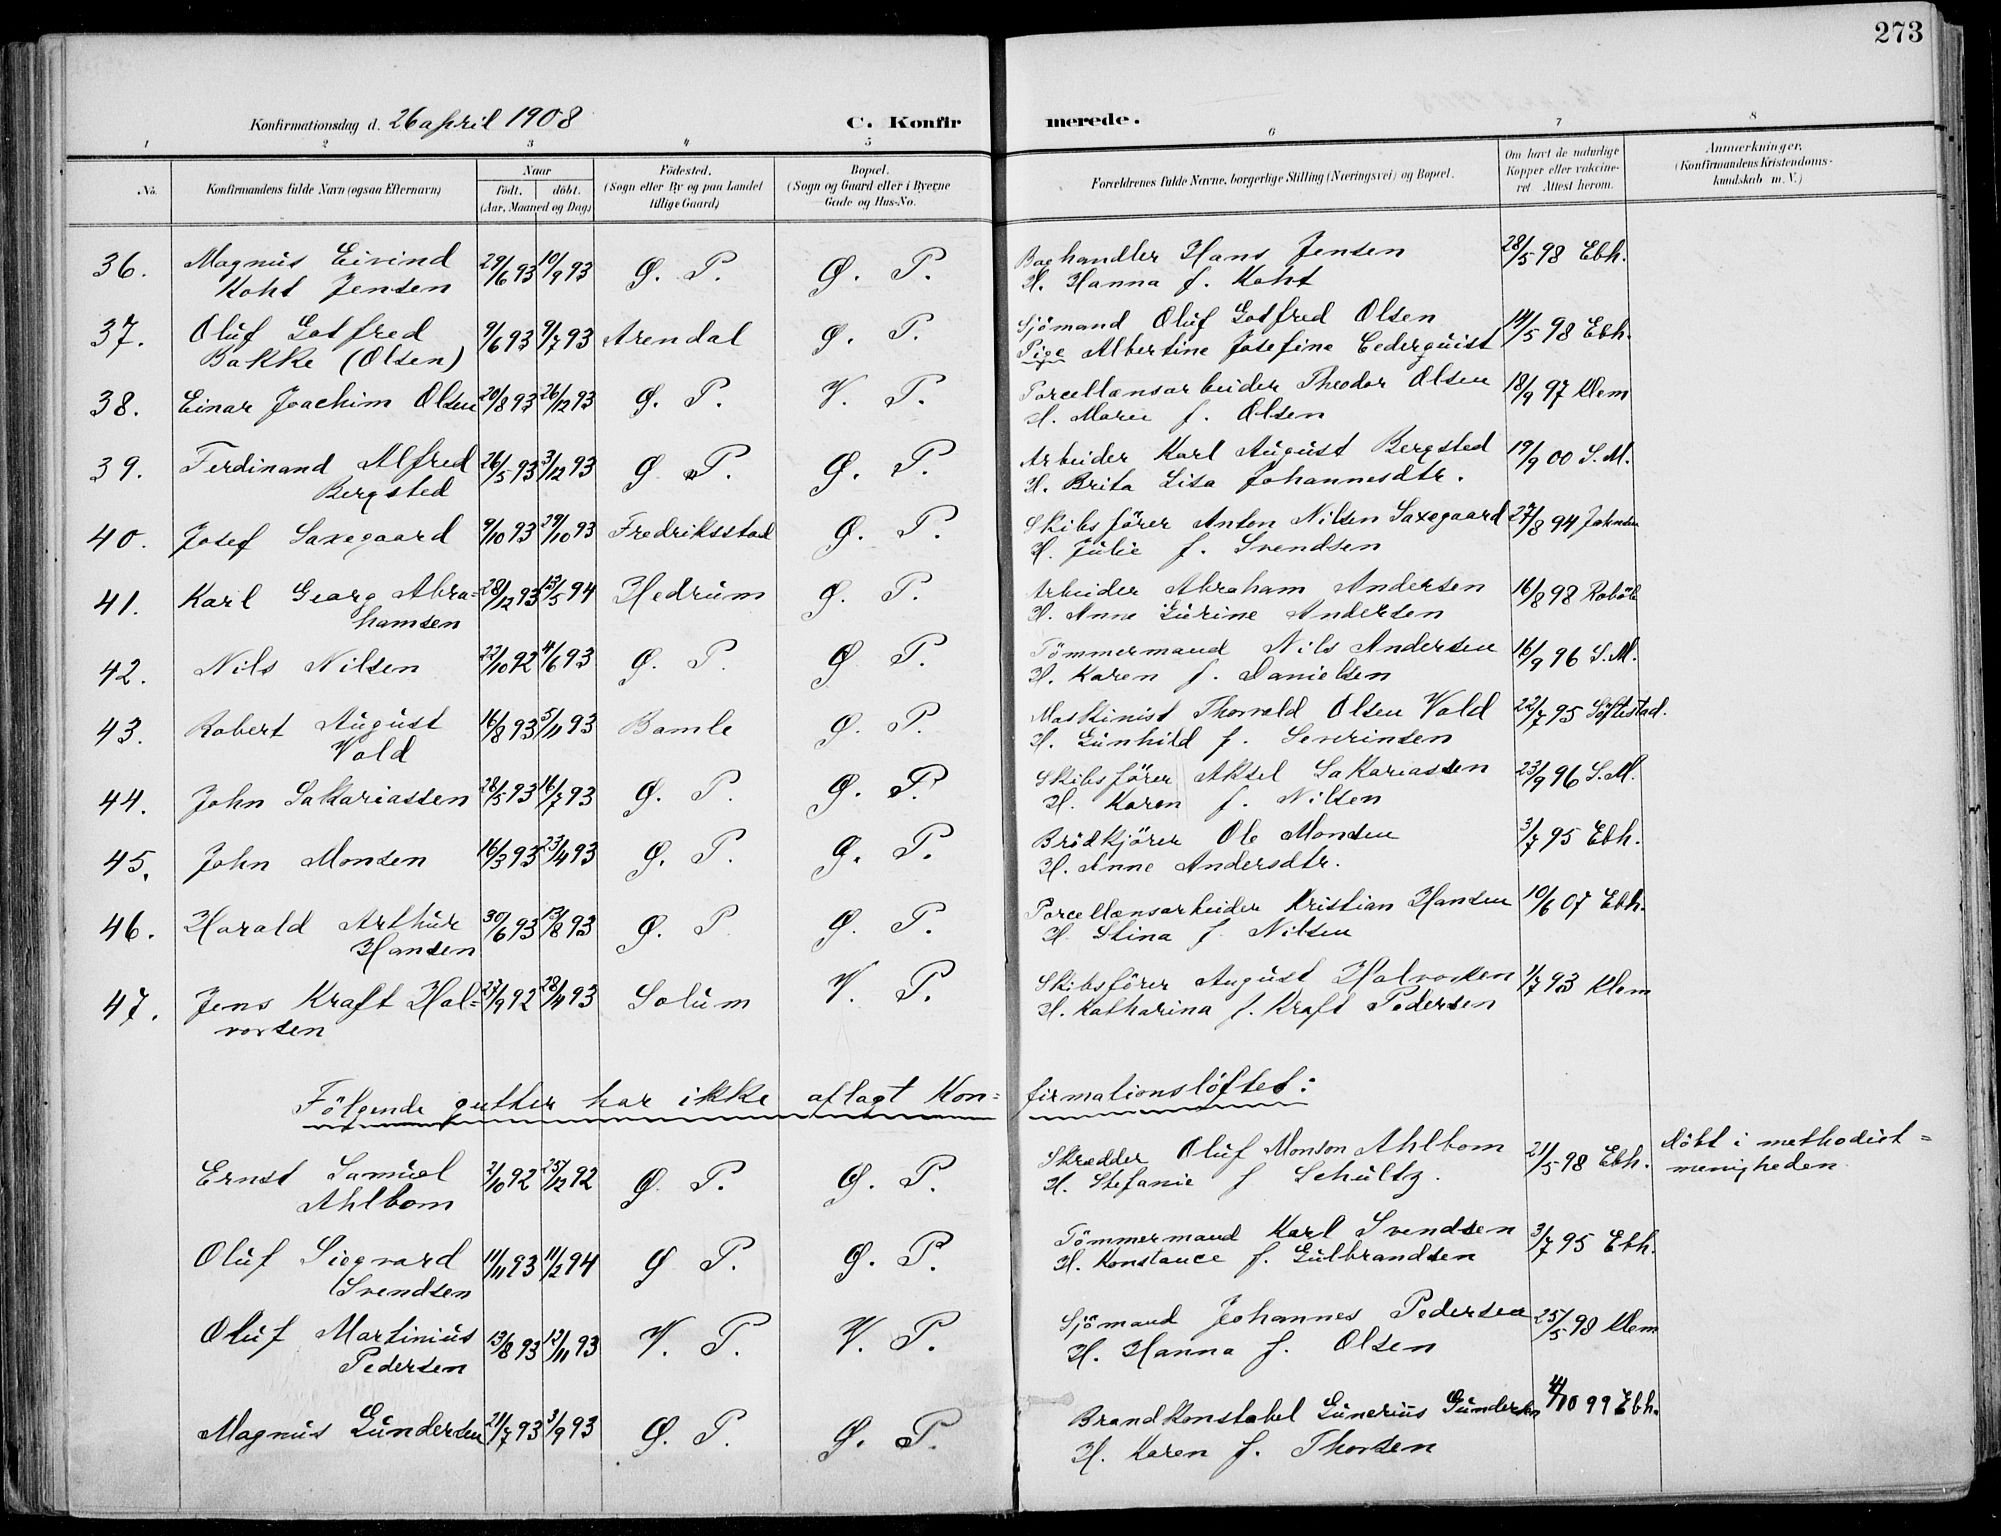 273
Konfirmationsdag d. 26 april 1908 C. Konfirmerede.
1 2 3 4 5 6 7 8
No. Konfirmandens fulde Navn (ogsaa Efternavn) Naar født. døbt. (Aar, Maaned og Dag) Fødested. (Sogn eller By og paa Landet tillige Gaard) Bopæl. (Sogn og Gaard eller i Byerne Gade og Hus-No. Forældrenes fulde Navne, borgerlige Stilling (Næringsvei) og Bopæl. Om havt de naturlige Kopper eller vaccineret Attest herom. Anmærkninger. (Konfirmandens Kristendomskundskab m. V.)
36. Magnus Eivind 29/6 93 10/9 93 Ø. P. Ø. P. Boghandler Hans Jensen 28/5 98 Ebh.
Koht Jensen H. Hanna f. Koht
37. Oluf Gotfred 9/6 93 9/7 93 Arendal Ø. P. Sjömand Oluf Gotfred Olsen 14/5 98 Ebh.
Bakke (Olsen) Pige Albertine Josefine Cederquist
38. Einar Joachim Olsen 20/8 93 26/12 93 Ø. P. V. P. Porcellænsarbeider Theodor Olsen 18/9 97 Klem
H. Maren f. Olsen
39. Ferdinand Alfred 26/5 93 3/12 93 Ø P. Ø. P. Arbeider Karl August Bergsted 19/9 00 S. M.
Bergsted H. Brita Lisa Johannesdtr.
40. Josef Saxegaard 9/10 93 29/10 93 Fredriksstad Ø. P. Skibsförer Anton Nilsen Saxegaard 27/8 94 Johnsen
H. Julie f. Svendsen
41. Karl Georg Abra= 28/12 93 13/5 94 Hedrum Ø. P. Arbeider Abraham Andersen 16/8 98
hamsen H. Anne Gurine Andersen
42. Nils Nilsen 22/10 92 4/6 93 Ø. P. Ø P. Tömmermand Nils Andersen 16/9 96 S. M.
H. Karen f. Danielsen
43. Robert August 16/8 93 5/11 93 Bamle Ø. P. Maskinist Thorvald Olsen Vold 22/7 95 Söftestad.
Vold H. Gunhild f. Severinsen
44. John Sakariassen 28/5 93 16/7 93 Ø. P. Ø. P. Skibsförer Aksel Sakariassen 23/9 96 S. M.
H. Karen f. Nilsen
45. John Monsen 16/3 93 23/4 93 Ø. P. Ø. P. Brödkjörer Ole Monsen 3/7 95 Ebh.
H. Anne Andersdtr.
46. Harald Arthur 30/6 93 13/8 93 Ø. P Ø. P. Porcellænsarbeider Kristian Hansen 10/6 07 Ebh.
Hansen H. Stina f. Nilsen
47. Jens Kraft Hal= 27/9 92 28/4 93 Solum V. P. Skibsförer August Halvorsen 1/7 93 Klem
vorsen H. Katharina f. Kraft Pedersen
Fölgende gutter har ikke aflagt Kon= firmationslöftet:
Ernst Samuel 2/10 92 25/12 92 Ø P. Ø. P. Skrædder Oluf Monson Ahlbom 21/5 98 Ebh. Döbt i methodist=
Ahlbom H. Stefanie f Schultz. menigheden
Oluf Siegvard 11/11 93 11/2 94 Ø P. Ø. P. Tömmermand Karl Svendsen 3/7 95 Ebh.
Svendsen H. Konstance f. Gulbrandsen
Oluf Martinius 13/8 93 12/11 93 V. P. V. P. Sjömand Johannes Pedersen 25/5 98 Klem
Pedersen H. Hanna f. Olsen
Magnus Gundersen 21/7 93 3/9 93 Ø. P. Ø. P. Brandkonstabel Gunerius Gundersen 4/10 99 Ebh.
H. Karen f. Thorsen